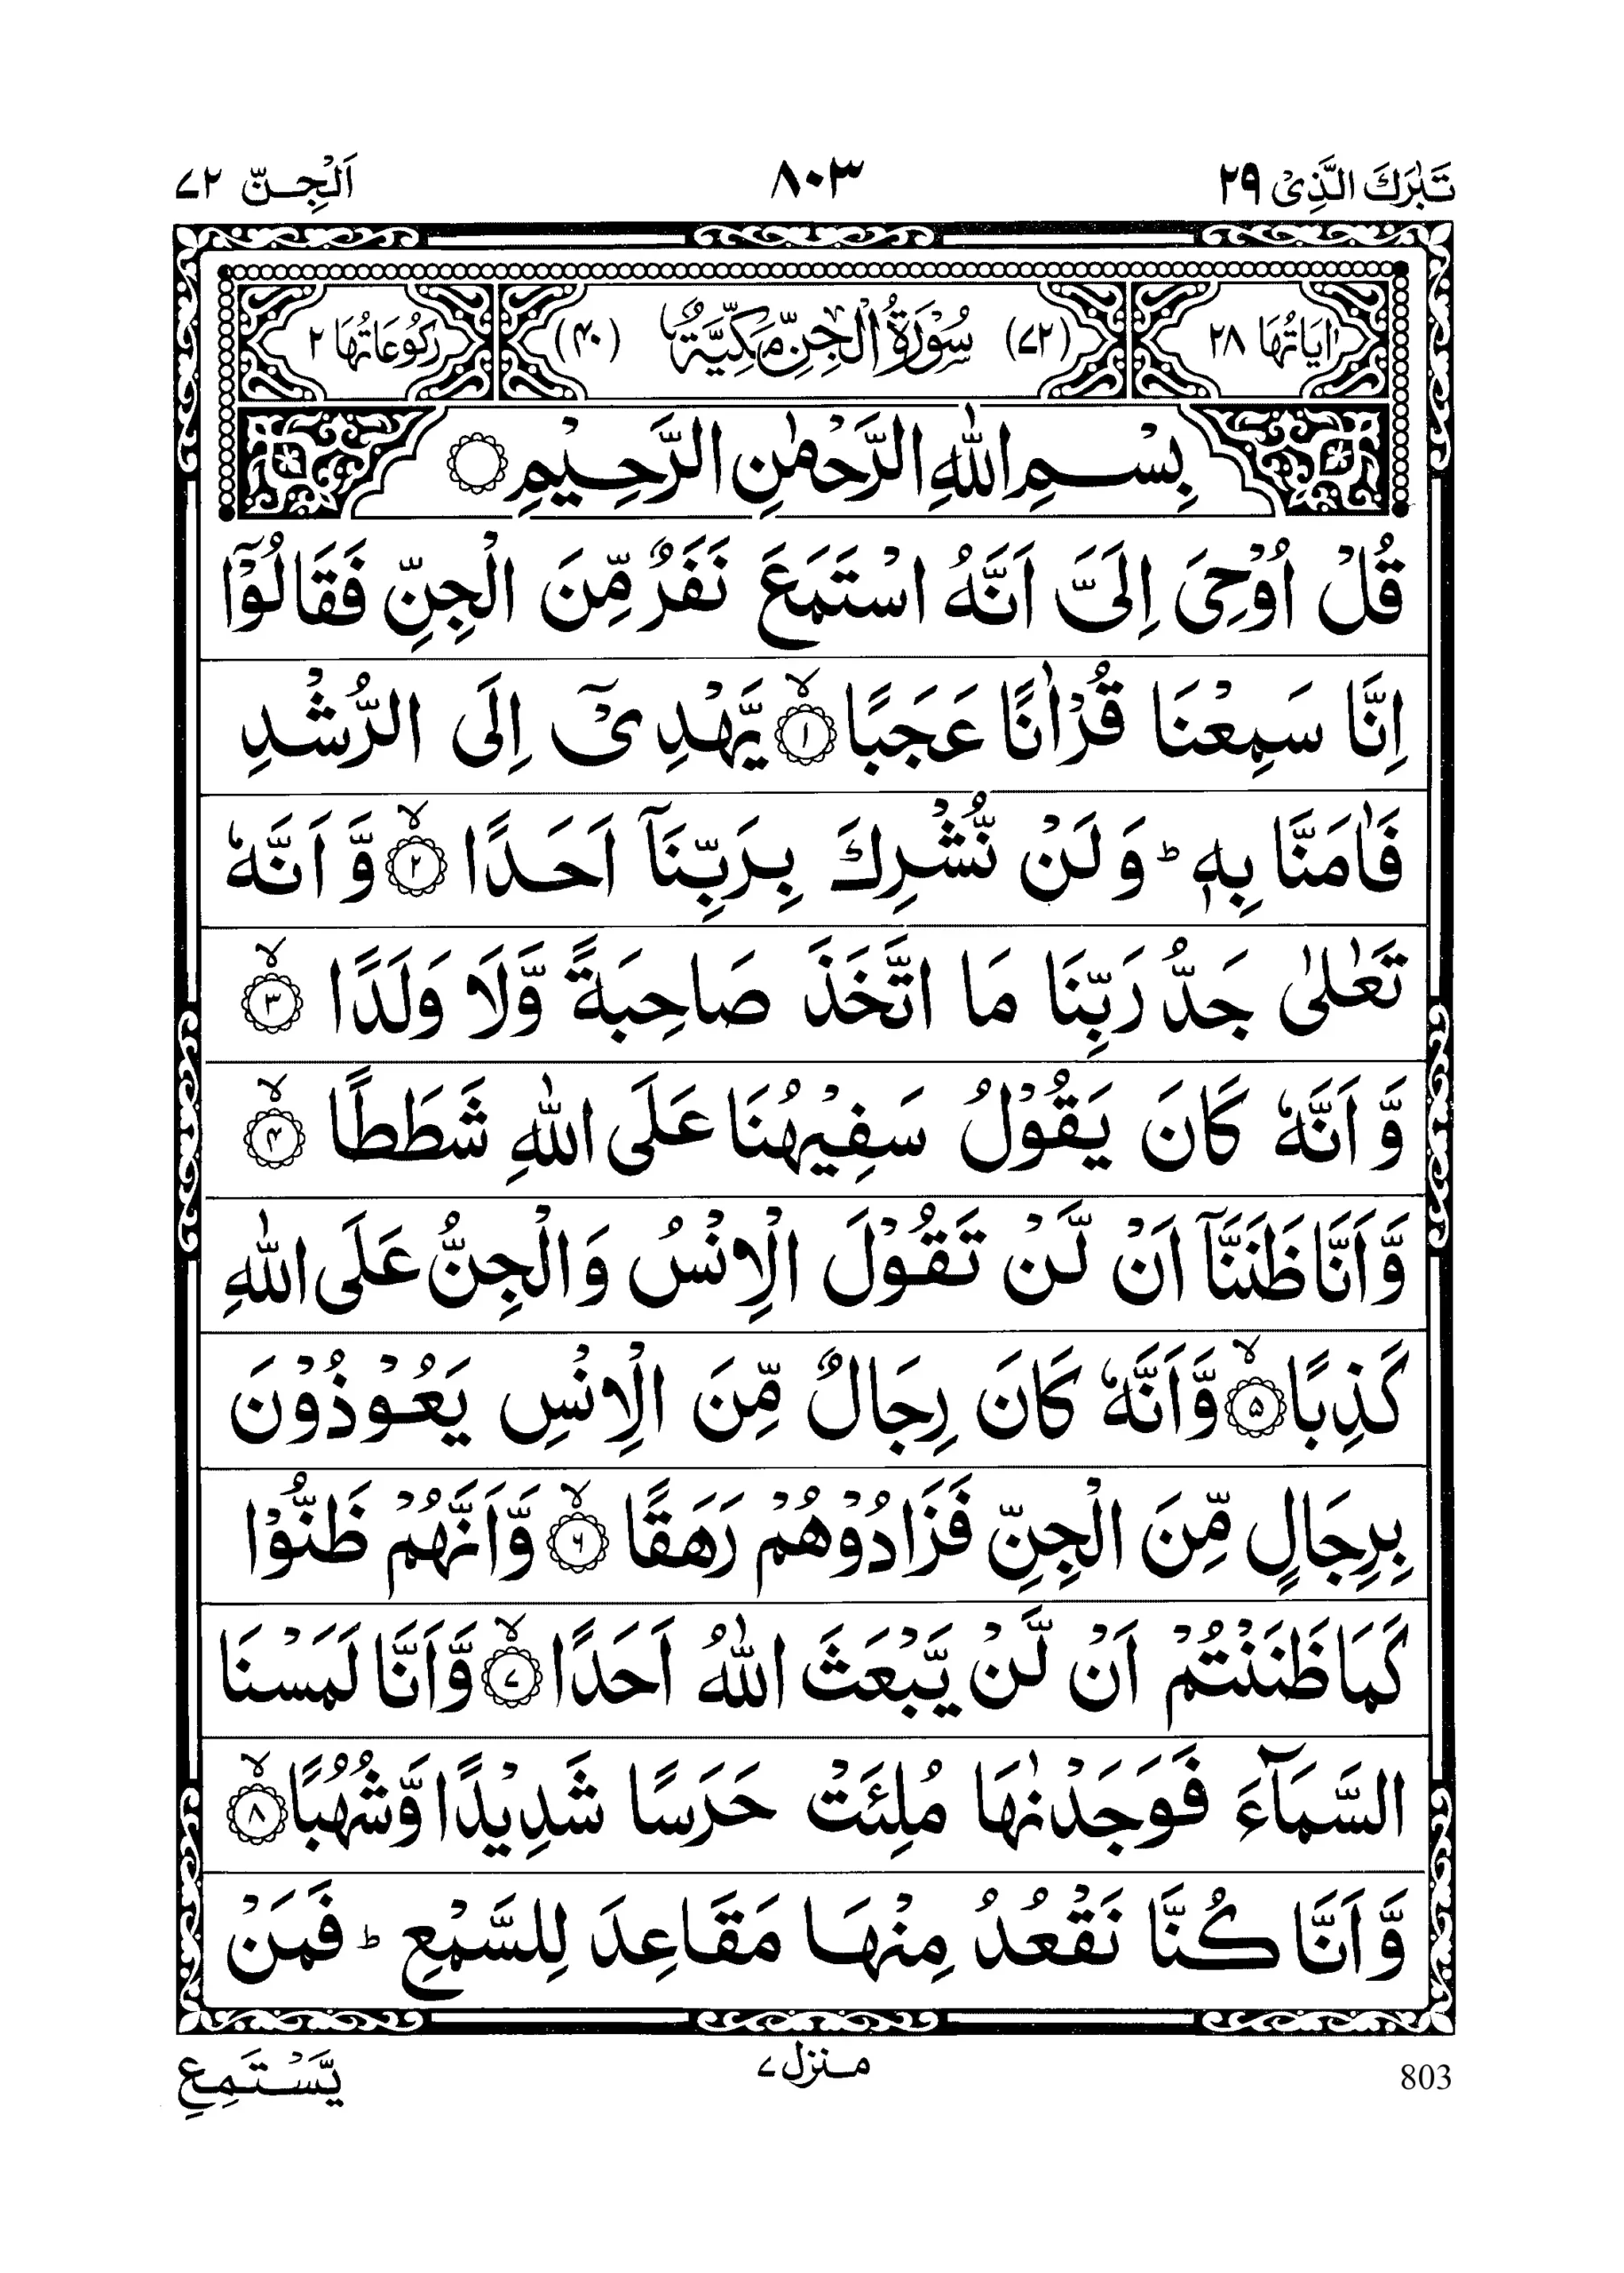 تَبٰرَكَ الَّذِىْ ٢٩
٨٠٣
اَلْجِـنّ ٧٢
اٰيَاتُهَا ٢٨
(٧٢) سُوْرَةُ الْجِنِّ مَكِّيَّةٌ (٤٠)
رُكُوْعَاتُهَا ٢
بِسْـمِ اللّٰهِ الرَّحْمٰنِ الرَّحِيْمِ ۝
قُلْ اُوْحِىَ اِلَىَّ اَنَّهُ اسْتَمَعَ نَفَرٌ مِّنَ الْجِنِّ فَقَالُوْٓا
اِنَّا سَمِعْنَا قُرْاٰنًا عَجَبًا ۙ‏﴿۱﴾ يَّهْدِىْٓ اِلَى الرُّشْدِ
فَاٰمَنَّا بِهٖ ؕ وَلَنْ نُّشْرِكَ بِرَبِّنَآ اَحَدًا ۙ‏﴿۲﴾ وَّ اَنَّهٗ
تَعٰلٰى جَدُّ رَبِّنَا مَا اتَّخَذَ صَاحِبَةً وَّلَا وَلَدًا ۙ‏﴿۳﴾
وَّ اَنَّهٗ كَانَ يَقُوْلُ سَفِيْهُنَا عَلَى اللّٰهِ شَطَطًا ۙ‏﴿۴﴾
وَّاَنَّا ظَنَنَّآ اَنْ لَّنْ تَقُوْلَ الْاِنْسُ وَالْجِنُّ عَلَى اللّٰهِ
كَذِبًا ۙ‏﴿۵﴾ وَّاَنَّهٗ كَانَ رِجَالٌ مِّنَ الْاِنْسِ يَعُوْذُوْنَ
بِرِجَالٍ مِّنَ الْجِنِّ فَزَادُوْهُمْ رَهَقًا ۙ‏﴿۶﴾ وَّاَنَّهُمْ ظَنُّوْا
كَمَا ظَنَنْتُمْ اَنْ لَّنْ يَّبْعَثَ اللّٰهُ اَحَدًا ۙ‏﴿۷﴾ وَّاَنَّا لَمَسْنَا
السَّمَآءَ فَوَجَدْنٰهَا مُلِئَتْ حَرَسًا شَدِيْدًا وَّشُهُبًا ۙ‏﴿۸﴾
وَّاَنَّا كُنَّا نَقْعُدُ مِنْهَا مَقَاعِدَ لِلسَّمْعِ ؕ فَمَنْ
يَّسْتَمِعِ
مـنزل ٧
803